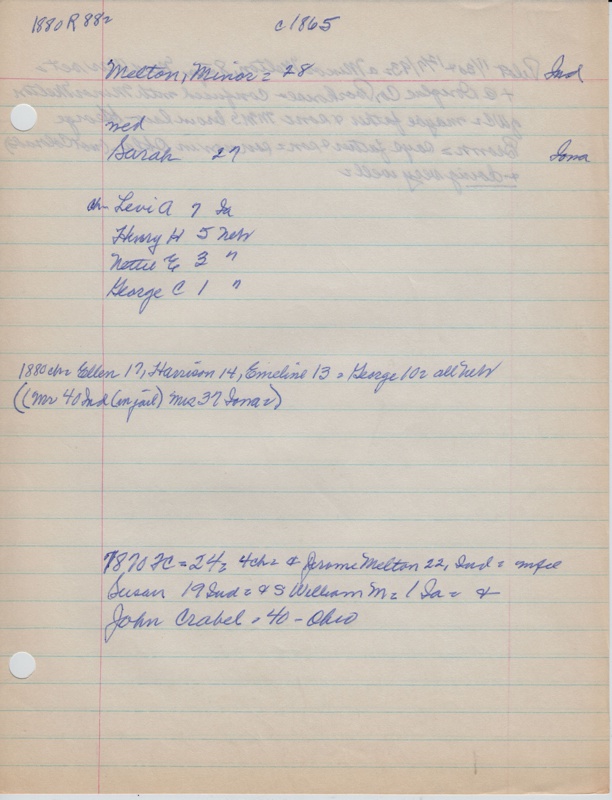 1880 R 882 c1865
Melton, Minor = 28 Ind
wed
Sarah 27 Iowa
ch- Levi A 7 Ia
Henry H 5 Neb
Nettie E 3 "
George C 1 "
1880 ch= Ellen 17, Harrison 14, Emeline 13 = George 10= all Neb
((Mr 40 Ind (in jail) Mrs 37 Iowa=)
1870 FC = 24= 4ch= & Jerome Melton 22, Ind =
Susan 19 Ind= & S William M= 1 Ia= &
John Crabel - 40 - Ohio